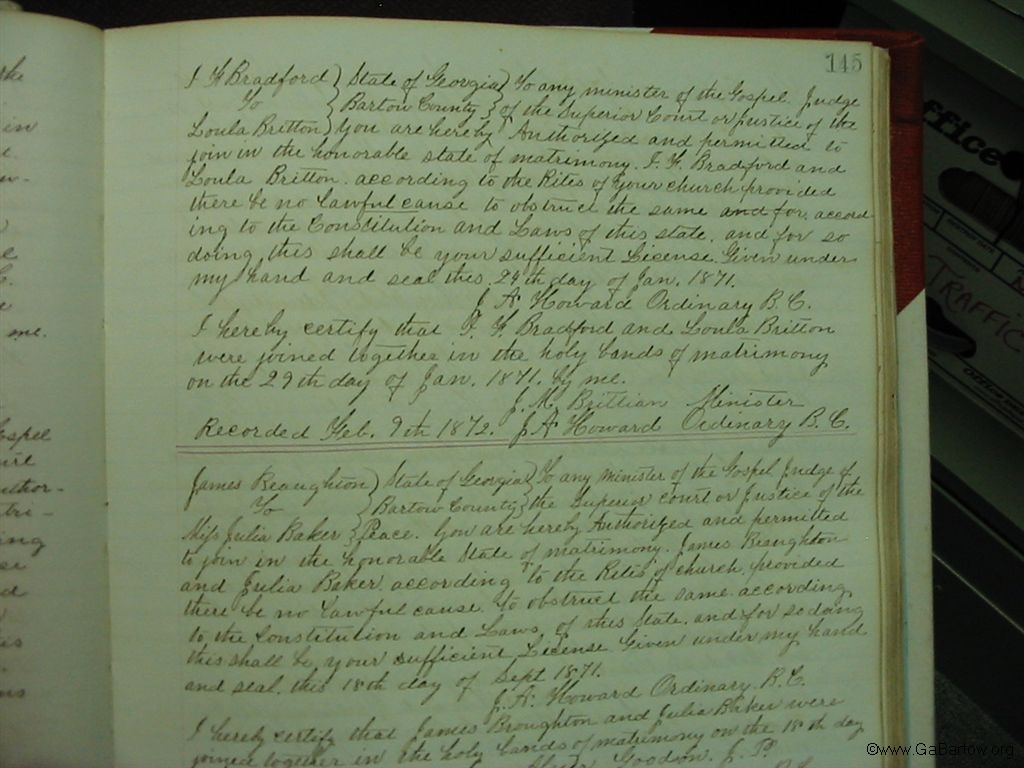 145
I H Bradford } State of Georgia } To any minister of the Gospel. Judge
To } Bartow County } of the Superior Court or justice of the
Loula Britton } You are hereby Authorized and permitted to
join in the honorable state of matrimony. I. H. Bradford and
Loula Britton. according to the Rites of your church provided
there be no lawful cause to obstruct the same and for, accord-
ing to the Constitution and Laws of this state. and for so
doing this shall be your sufficient License. Given under
my hand and seal this. 29th day of Jan. 1871.
J. A. Howard Ordinary B. C.
I hereby certify that Bradford and Loula Britton
were joined together in the holy bands of matrimony
on the 29th day of Jan. 1871. by me.
J. M. Brittian Minister
Recorded Feb. 9th 1872. J. A. Howard Ordinary B. C.
James Beaughton } State of Georgia } To any minister of the Gospel Judge of
To } Bartow County } the Superior court or Justice of the
Miss Julia Baker } Peace. You are hereby Authorized and permitted
to join in the honorable State of matrimony. James Beaughton
and Julia Baker. according to the Rites of church. provided
there be no Lawful cause to obstruct the same. according
to the Constitution and Laws of this State. and for so doing
this shall be your sufficient License. Given under my hand
and seal. this 18th day of Sept 1871.
J. A. Howard Ordinary. B. C.
I hereby certify that James Broughton and Julia Baker were
joined together in the holy bands of matrimony on the 18th day
Goodson. J. P.
in
me.
Gospel
Author-
ing
ffice
TRAFFIC
©www.GaBartow.org